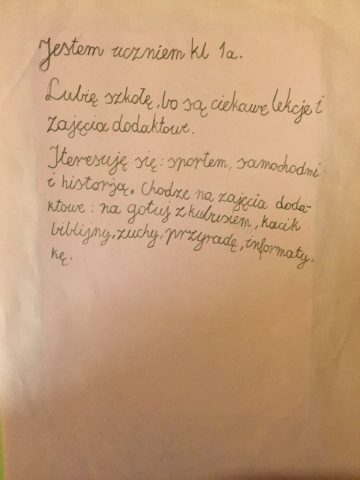 Jestem uczniem kl 1a.
Lubię szkołę, bo są ciekawe lekcje i
zajęcia dodaktowe.
Iteresuję się: sportem, samochodni
i historją. Chodze na zajęcia doda-
ktowe: na gotuj z kubusiem, kacik
biblijny, zuchy, przyradę, informaty-
kę.